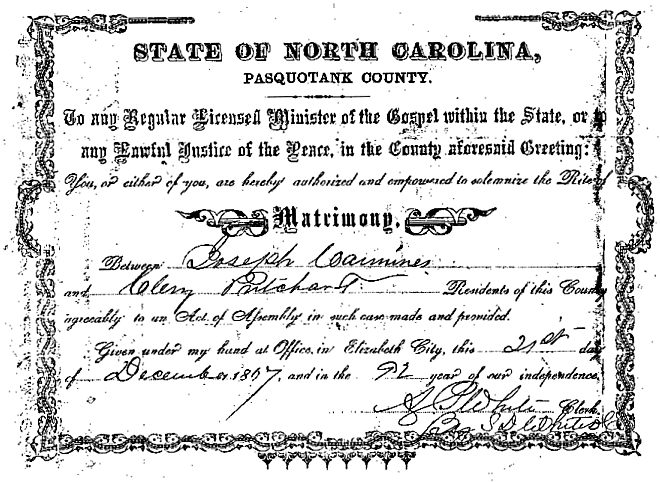 STATE OF NORTH CAROLINA,
PASQUOTANK COUNTY.
To any Regular Licensed Minister of the Gospel within the State, or to
any Lawful Justice of the Peace, in the County aforesaid Greeting:
You, or either of you, are hereby authorized and empowered to solemnize the Rite of
Matrimony.
Between Joseph
and Pritchard Residents of this County
agreeably to an Act of Assembly in such case made and provided.
Given under my hand at Office, in Elizabeth City, this 21st day
of December 1867, and in the 92 year of our independence.
White Clerk